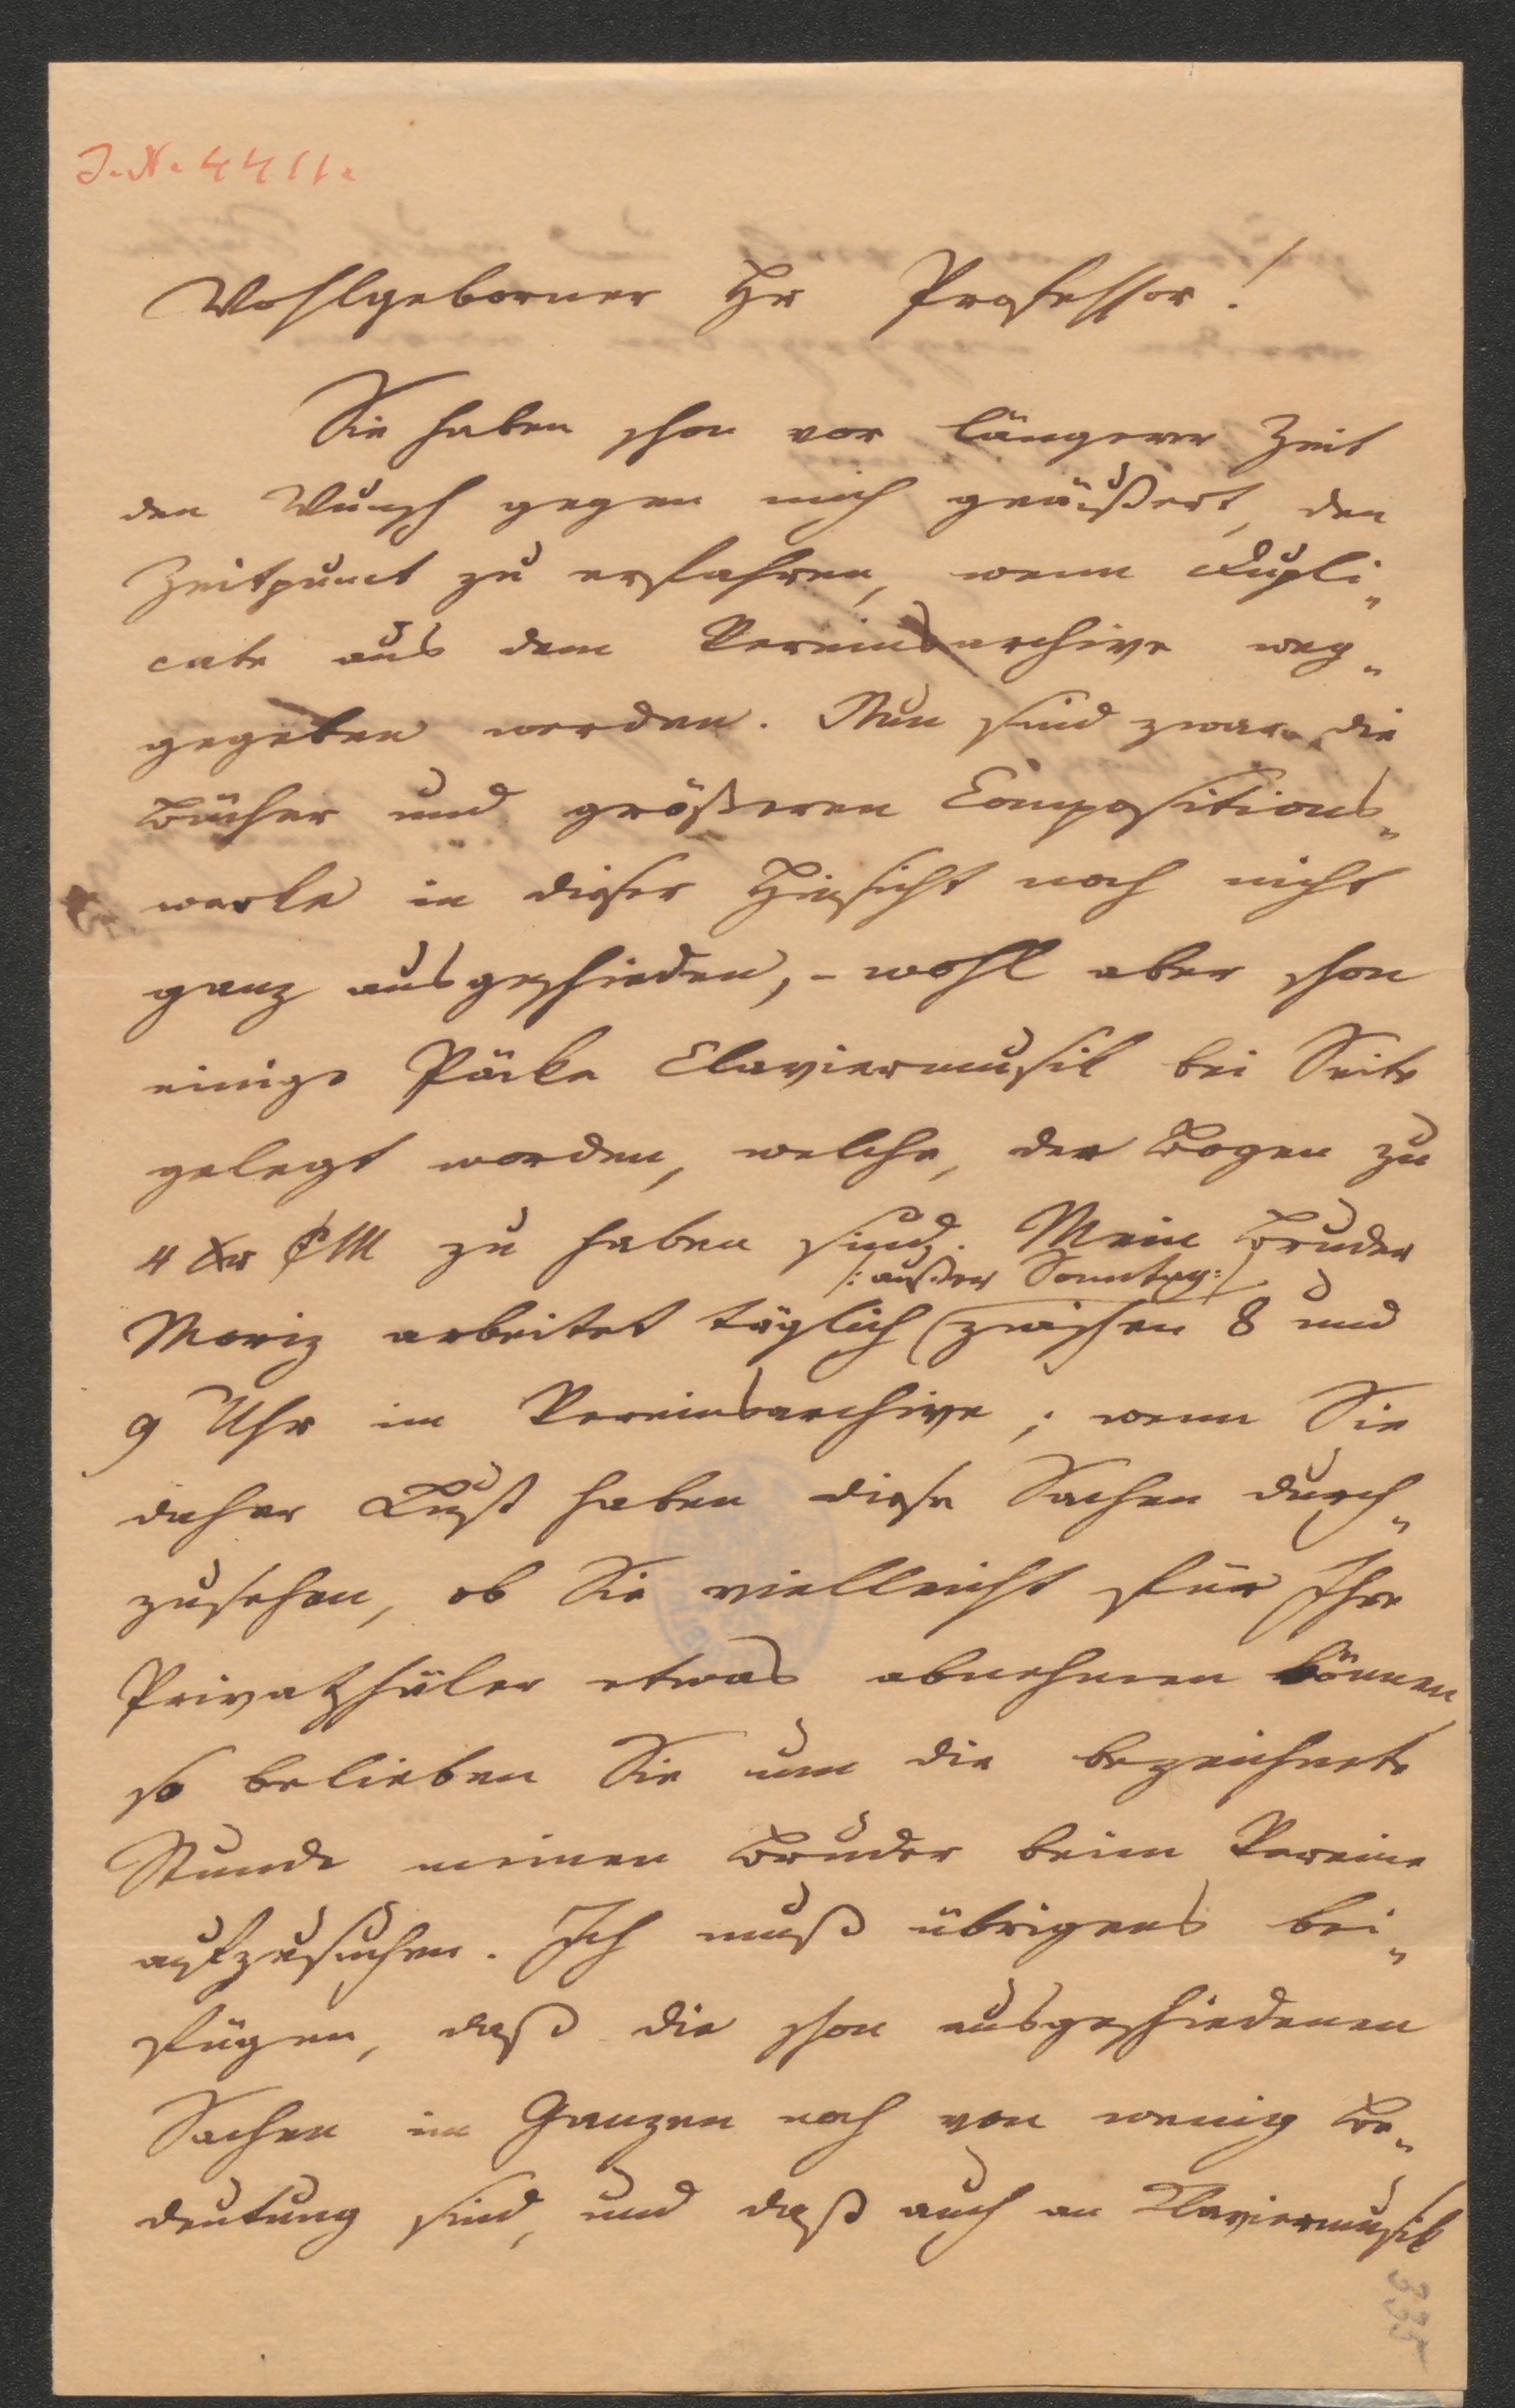 J. N. 4411.
Wohlgeborner Hr Professor!
Sie haben schon vor längerer Zeit
den Wunsch gegen mich geäußert, den
Zeitpunct zu erfahren, wenn Dupli„
cate aus dem Vereinsarchive weg„
gegeben werden. Nun sind zwar die
Bücher und größeren Compositions„
werke in dieser Hinsicht noch nicht
ganz ausgeschieden, – wohl aber schon
einige Päcke Claviermusik bei Seite
gelegt worden, welche, der Bogen zu
4 Xr CM zu haben sind. Mein Bruder
/: außer Sonntag :/
Moriz arbeitet täglich zwischen 8 und
9 Uhr im Vereinsarchive; wenn Sie
daher Lust haben diese Sachen durch„
zusehen, ob Sie vielleicht für Ihre
Privatschüler etwas abnehmen können
so belieben Sie um die bezeichnete
Stunde meinen Bruder beim Vereine
aufzusuchen. Ich muß übrigens bei„
fügen, daß die schon ausgeschiedenen
Sachen im Ganzen noch von wenig Be„
deutung sind, und daß auch an Claviermusik
335